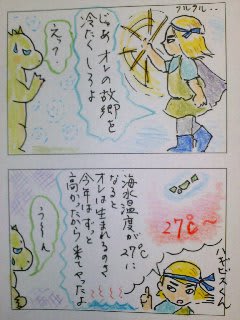 クルクル‥
じゃあオレの故郷を
冷たくしろよ
えっ?
27℃~
海水温度が27℃に
なると
オレは生まれるのさ
今年はずっと
高かったから来てやたよ
う~ん